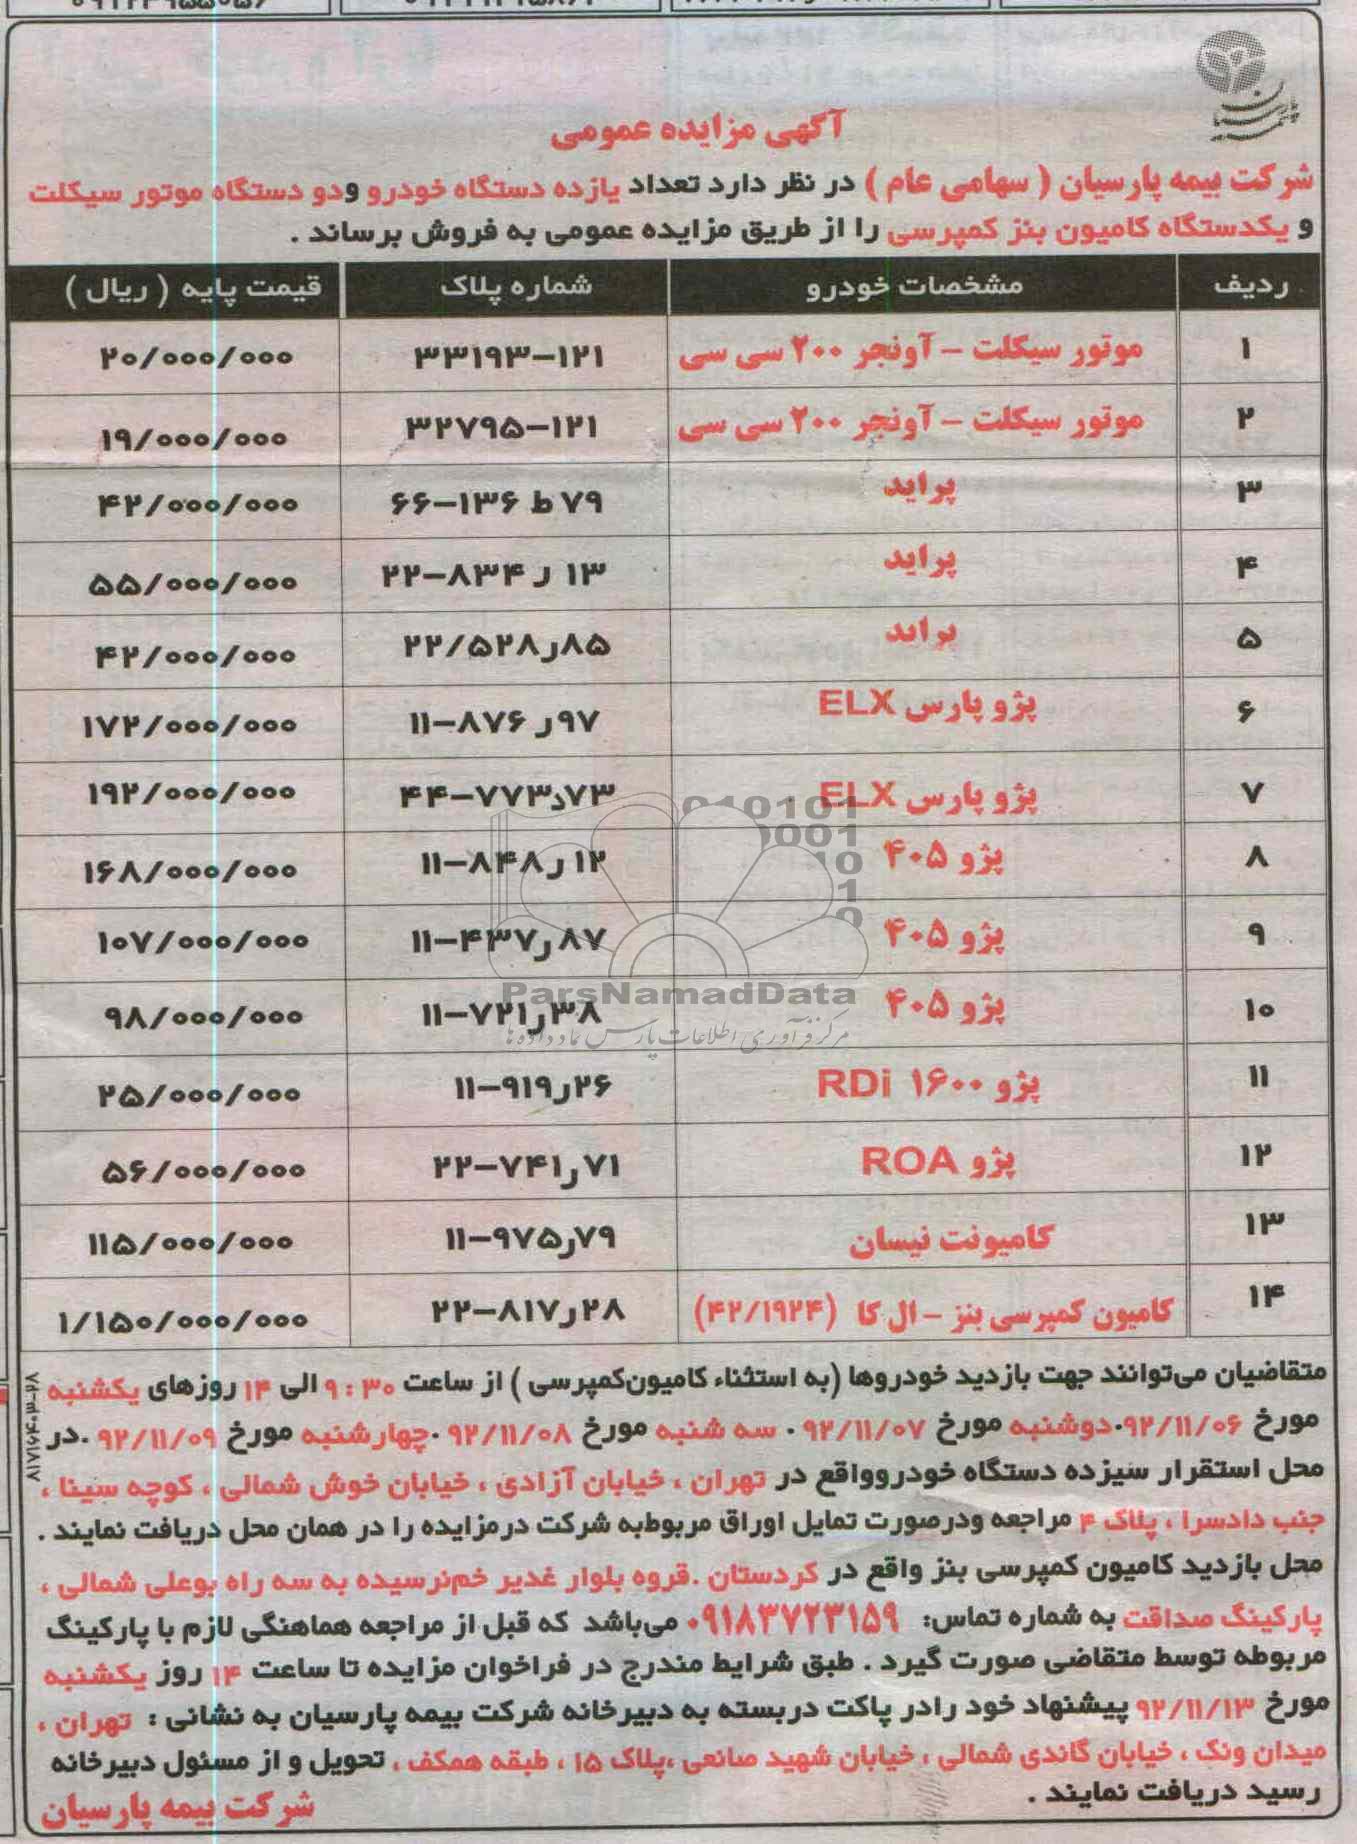 بیمه پارسیان
آگهی مزایده عمومی
شرکت بیمه پارسیان ( سهامی عام ) در نظر دارد تعداد یازده دستگاه خودرو ودو دستگاه موتور سیکلت
و یکدستگاه کامیون بنز کمپرسی را از طریق مزایده عمومی به فروش برساند .
ردیف مشخصات خودرو شماره پلاک قیمت پایه ( ریال )
۱ موتور سیکلت – آونجر ۲۰۰ سی سی ۳۳۱۹۳–۱۲۱ ۲۰/۰۰۰/۰۰۰
۲ موتور سیکلت – آونجر ۲۰۰ سی سی ۳۲۷۹۵–۱۲۱ ۱۹/۰۰۰/۰۰۰
۳ پراید ۷۹ ط ۱۳۶–۶۶ ۴۲/۰۰۰/۰۰۰
۴ پراید ۱۳ ر ۸۳۴–۲۲ ۵۵/۰۰۰/۰۰۰
۵ پراید ۸۵ر۲۲/۵۲۸ ۴۲/۰۰۰/۰۰۰
۶ پژو پارس ELX ۹۷ر ۸۷۶–۱۱ ۱۷۲/۰۰۰/۰۰۰
۷ پژو پارس ELX ۷۳د۷۷۳–۴۴ ۱۹۲/۰۰۰/۰۰۰
۸ پژو ۴۰۵ ۱۲ ر۸۴۸–۱۱ ۱۶۸/۰۰۰/۰۰۰
۹ پژو ۴۰۵ ۸۷ر۴۳۷–۱۱ ۱۰۷/۰۰۰/۰۰۰
۱۰ پژو ۴۰۵ ۳۸ر۷۲۱–۱۱ ۹۸/۰۰۰/۰۰۰
۱۱ پژو ۱۶۰۰ RDi ۲۶ر۹۱۹–۱۱ ۲۵/۰۰۰/۰۰۰
۱۲ پژو ROA ۷۱ر۷۴۱–۲۲ ۵۶/۰۰۰/۰۰۰
۱۳ کامیونت نیسان ۷۹ر۹۷۵–۱۱ ۱۱۵/۰۰۰/۰۰۰
۱۴ کامیون کمپرسی بنز – ال کا (۴۲/۱۹۲۴) ۲۸ر۸۱۷–۲۲ ۱/۱۵۰/۰۰۰/۰۰۰
متقاضیان می‌توانند جهت بازدید خودروها (به استثناء کامیون‌کمپرسی ) از ساعت ۳۰ : ۹ الی ۱۴ روزهای یکشنبه
مورخ ۹۲/۱۱/۰۶.دوشنبه مورخ ۹۲/۱۱/۰۷ . سه شنبه مورخ ۹۲/۱۱/۰۸ .چهارشنبه مورخ ۹۲/۱۱/۰۹ .در
محل استقرار سیزده دستگاه خودروواقع در تهران ، خیابان آزادی ، خیابان خوش شمالی ، کوچه سینا ،
جنب دادسرا ، پلاک ۴ مراجعه ودرصورت تمایل اوراق مربوطبه شرکت درمزایده را در همان محل دریافت نمایند .
محل بازدید کامیون کمپرسی بنز واقع در کردستان .قروه بلوار غدیر خم‌نرسیده به سه راه بوعلی شمالی ،
پارکینگ صداقت به شماره تماس: ۰۹۱۸۳۷۲۳۱۵۹ می‌باشد که قبل از مراجعه هماهنگی لازم با پارکینگ
مربوطه توسط متقاضی صورت گیرد . طبق شرایط مندرج در فراخوان مزایده تا ساعت ۱۴ روز یکشنبه
مورخ ۹۲/۱۱/۱۳ پیشنهاد خود رادر پاکت دربسته به دبیرخانه شرکت بیمه پارسیان به نشانی : تهران ،
میدان ونک ، خیابان گاندی شمالی ، خیابان شهید صانعی ،پلاک ۱۵ ، طبقه همکف ، تحویل و از مسئول دبیرخانه
رسید دریافت نمایند .
شرکت بیمه پارسیان
ParsNamadData
مرکز فرآوری اطلاعات پارس نماد داده ها